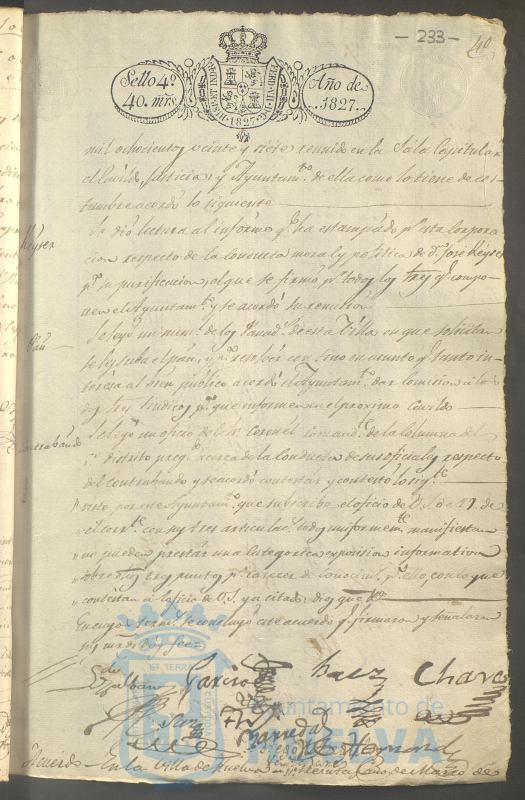 - 233 -
40
Sello 4º
40. mrs
HISPANIAR. REX 1827
FERD. VII. D. G.
Año de
1827.
mil ochocientos veinte y siete reunido en la Sala Capitular
el Cavildo, Justicia y Ayuntamto. de ella como lo tiene de cos-
tumbre acordó lo siguiente
Keyser
Se dió lectura al informe qe. ha estampado pr. esta Corpora
cion respecto de la conducta moral y politica de Dn. José Keyser
pa. su purificacion, el que se firmó pr. todos los Sres. qe. compo-
nen el Ayuntamto. y se acordó su remision
Pan
Se leyó un mem. de los Panads. de esta Villa en que solicitan
se les suba el pan, y pr. resolver con tino en asunto qe. tanto in-
teresa al bien público acordó el Ayuntamto. dar comision a los
dos Sres. Sindicos pa. que informen en el proximo Cavildo
Contrabando
Se leyó un oficio del Sr. Coronel Comandte. de la Columna del
distrito acerca de la conducta de sus oficiales respecto
del Contrabando y se acordó contestar y contestó lo sigte.
este Ayuntamto. que subscribe el oficio de V.S. de 27. de
el corrte. con sus tres articulos todos uniformemte. manifiestan
no pueden prestar una categorica exposicion informativa
sobre dhos. tres puntos pr. carecer de conocimto. pa. ello, con lo que
contestan al oficio de V.S. ya citado: Dios gue. &
En cuyo termo. se concluyó este acuerdo qe. firmaron y señalaron
sus mrds. doy fee=
Garcia
Baez
Chaves
Barreda
Hernand
Ayuntamiento de
HUELVA
Acuerdo - En la Villa de Huelva en treinta de Marzo de